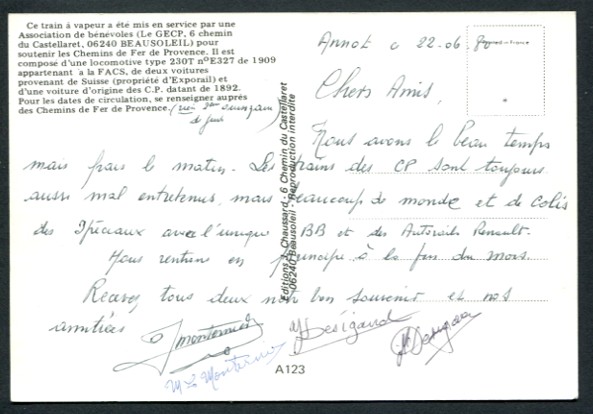 Ce train à vapeur a été mis en service par une
Association de bénévoles (Le GECP, 6 chemin
du Castellaret, 06240 BEAUSOLEIL) pour
soutenir les Chemins de Fer de Provence. Il est
composé d'une locomotive type 230T nºE327 de 1909
appartenant à la FACS, de deux voitures
provenant de Suisse (propriété d'Exporail) et
d'une voiture d'origine des C.P. datant de 1892.
Pour les dates de circulation, se renseigner auprès
des Chemins de Fer de Provence.
Annot 22.06
Chers Amis,
Nous avons le beau temps
mais frais le matin. Les trains des CP sont toujours
aussi mal entretenus, mais beaucoup de monde et de colis
des Spéciaux avec l'unique BB et des Autorails Renault.
Nous rentrons en principe à la fin du mois.
Recevez tous deux notre bon souvenir et nos
amitiés
Editions J. Chaussard - 6 Chemin du Castellaret
06240 Beausoleil - Reproduction interdite
A123